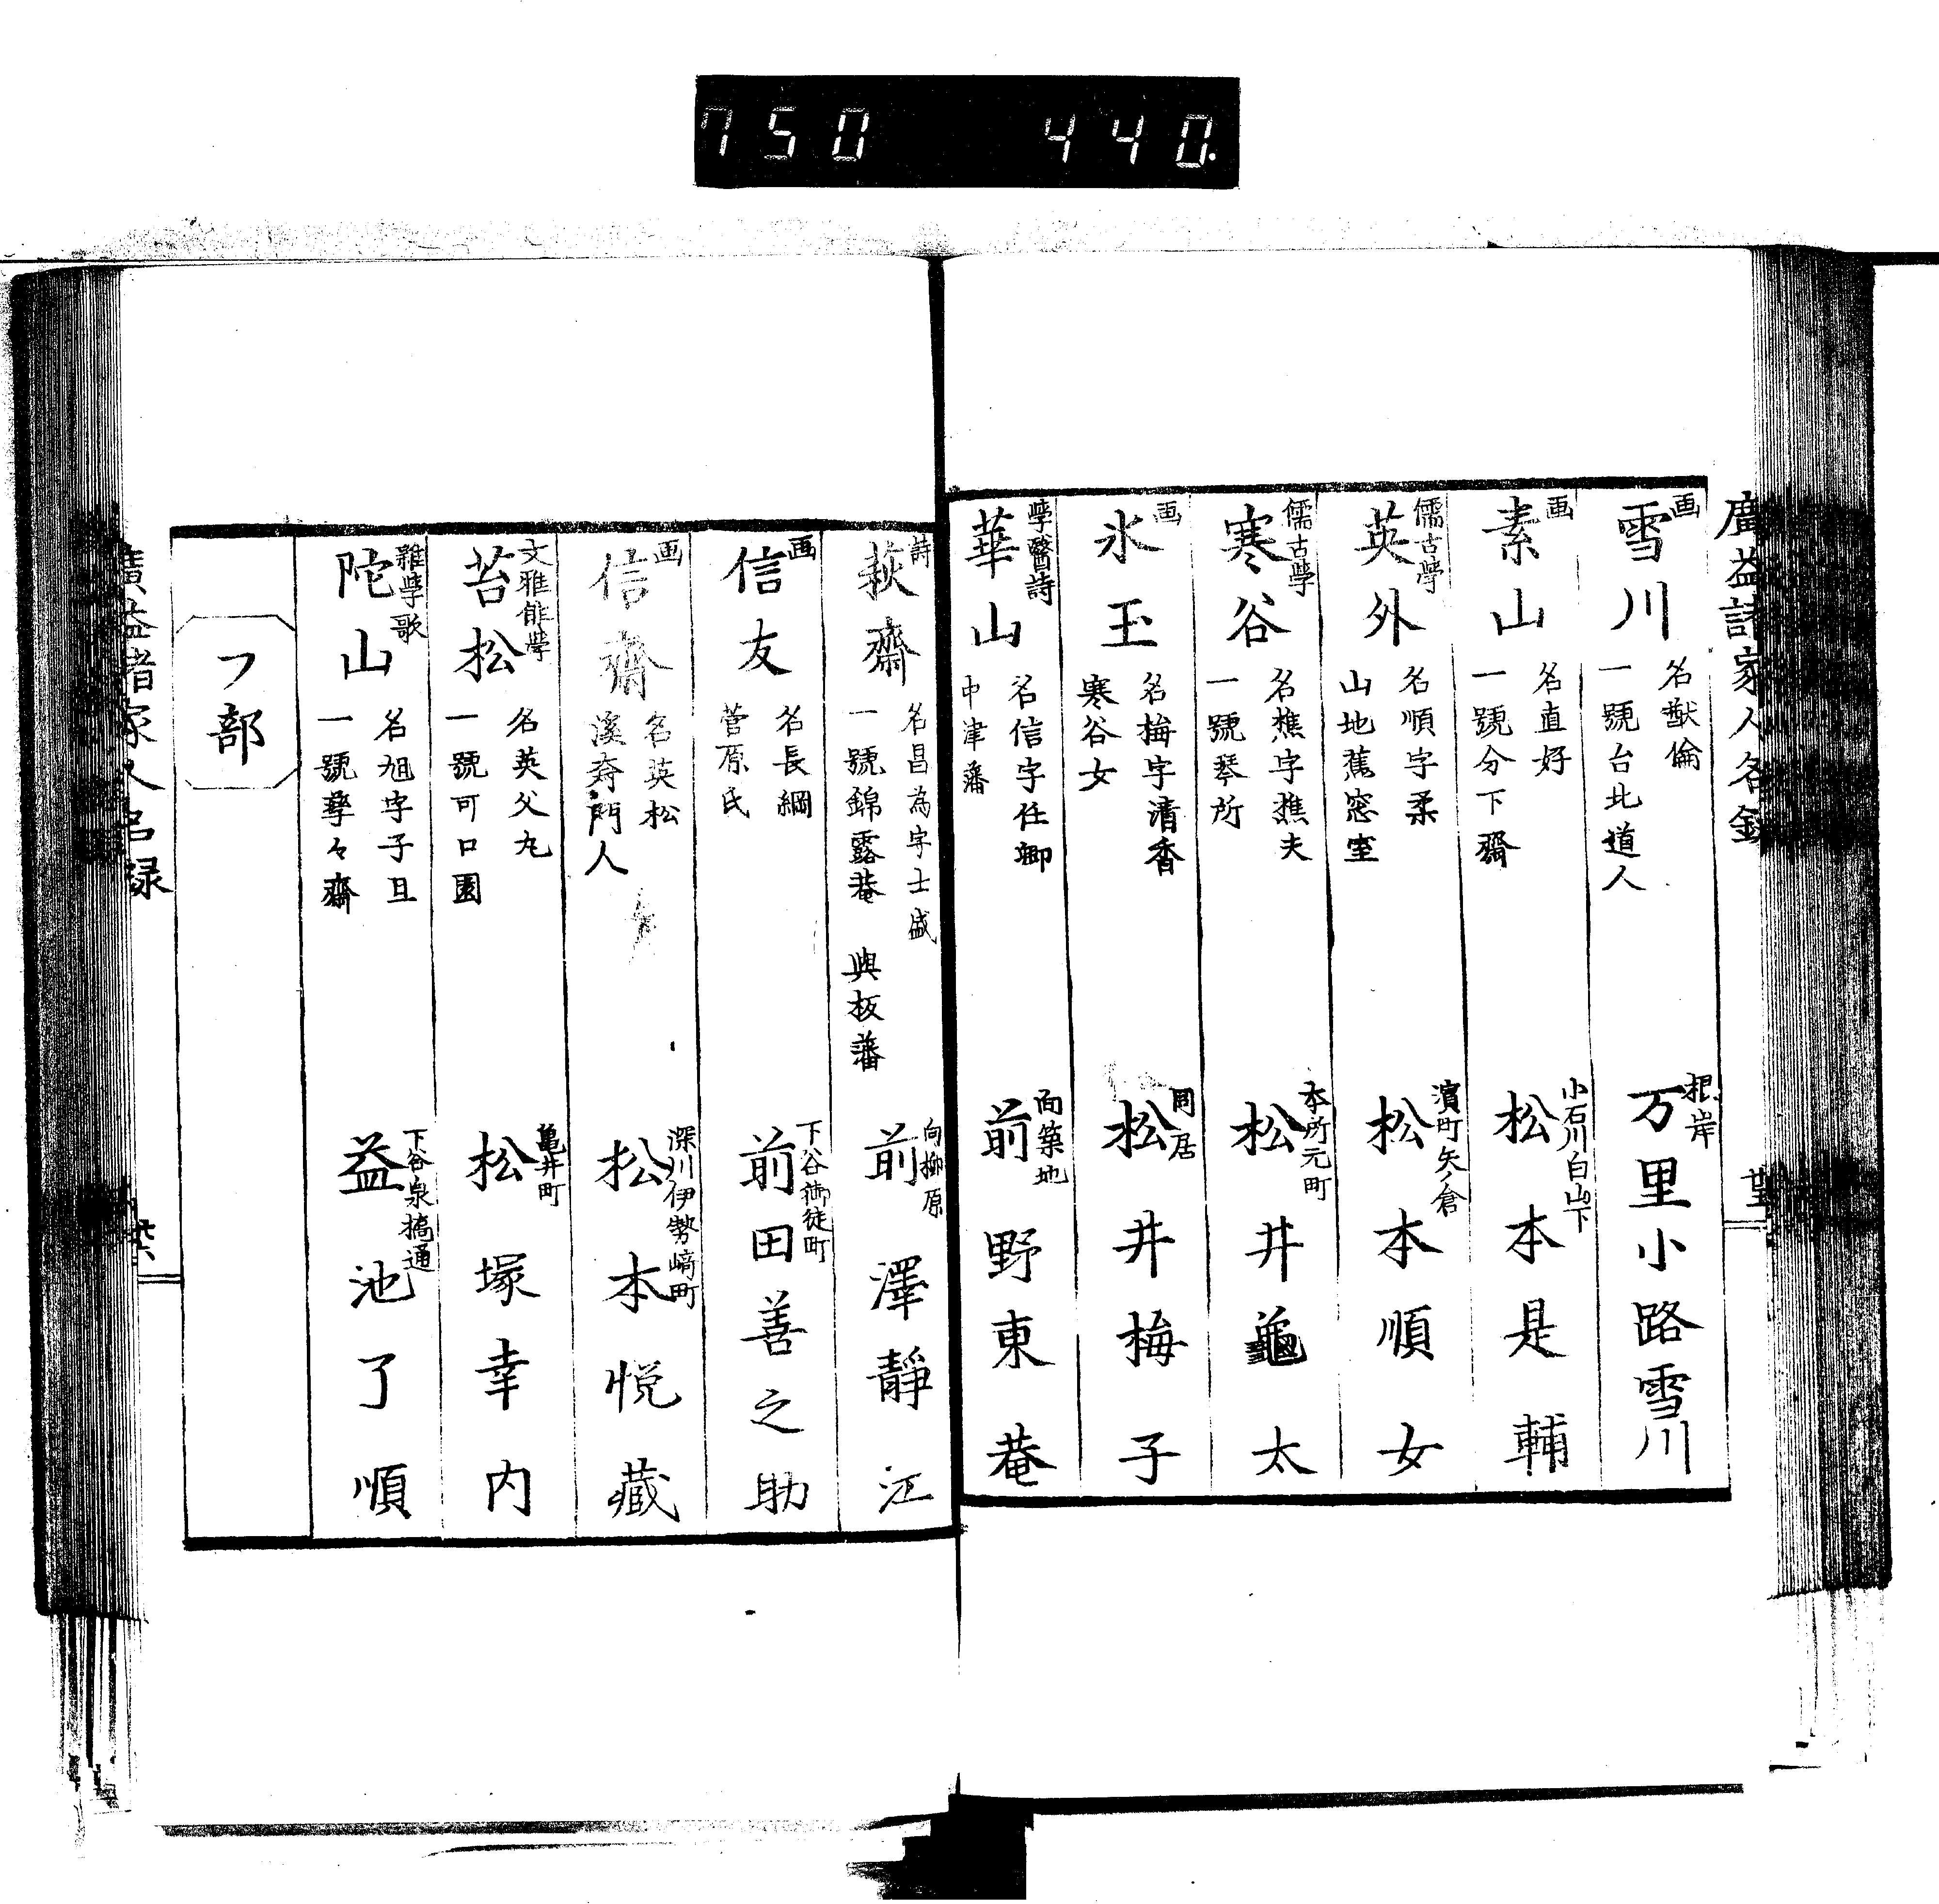 750 440.
廣益諸家人名録
画
雪川
名猷倫
一號台北道人
根岸
万里小路雪川
画
素山
名直好
一號分下齋
小石川白山下
松本是輔
儒古學
英外
名順字柔
山地蕉窓室
濱町矢ノ倉
松本順女
儒古學
寒谷
名樵字樵夫
一號琴所
本所元町
松井龜太
画
氷玉
名梅字清香
寒谷女
同居
松井梅子
學醫詩
華山
名信字任卿
中津藩
西築地
前野東菴
詩
萩齋
名昌為字士盛
一號錦露菴 與板藩
向柳原
前澤靜江
画
信友
名長綱
菅原氏
下谷御徒町
前田善之助
画
信齋
名英松
溪斎門人
深川伊勢崎町
松本悦藏
文雅俳學
苔松
名英父丸
一號可口園
亀井町
松塚幸内
雜學歌
陀山
名旭字子旦
一號孳々齋
下谷泉橋通
益池了順
フ部
廣益諸家人名録